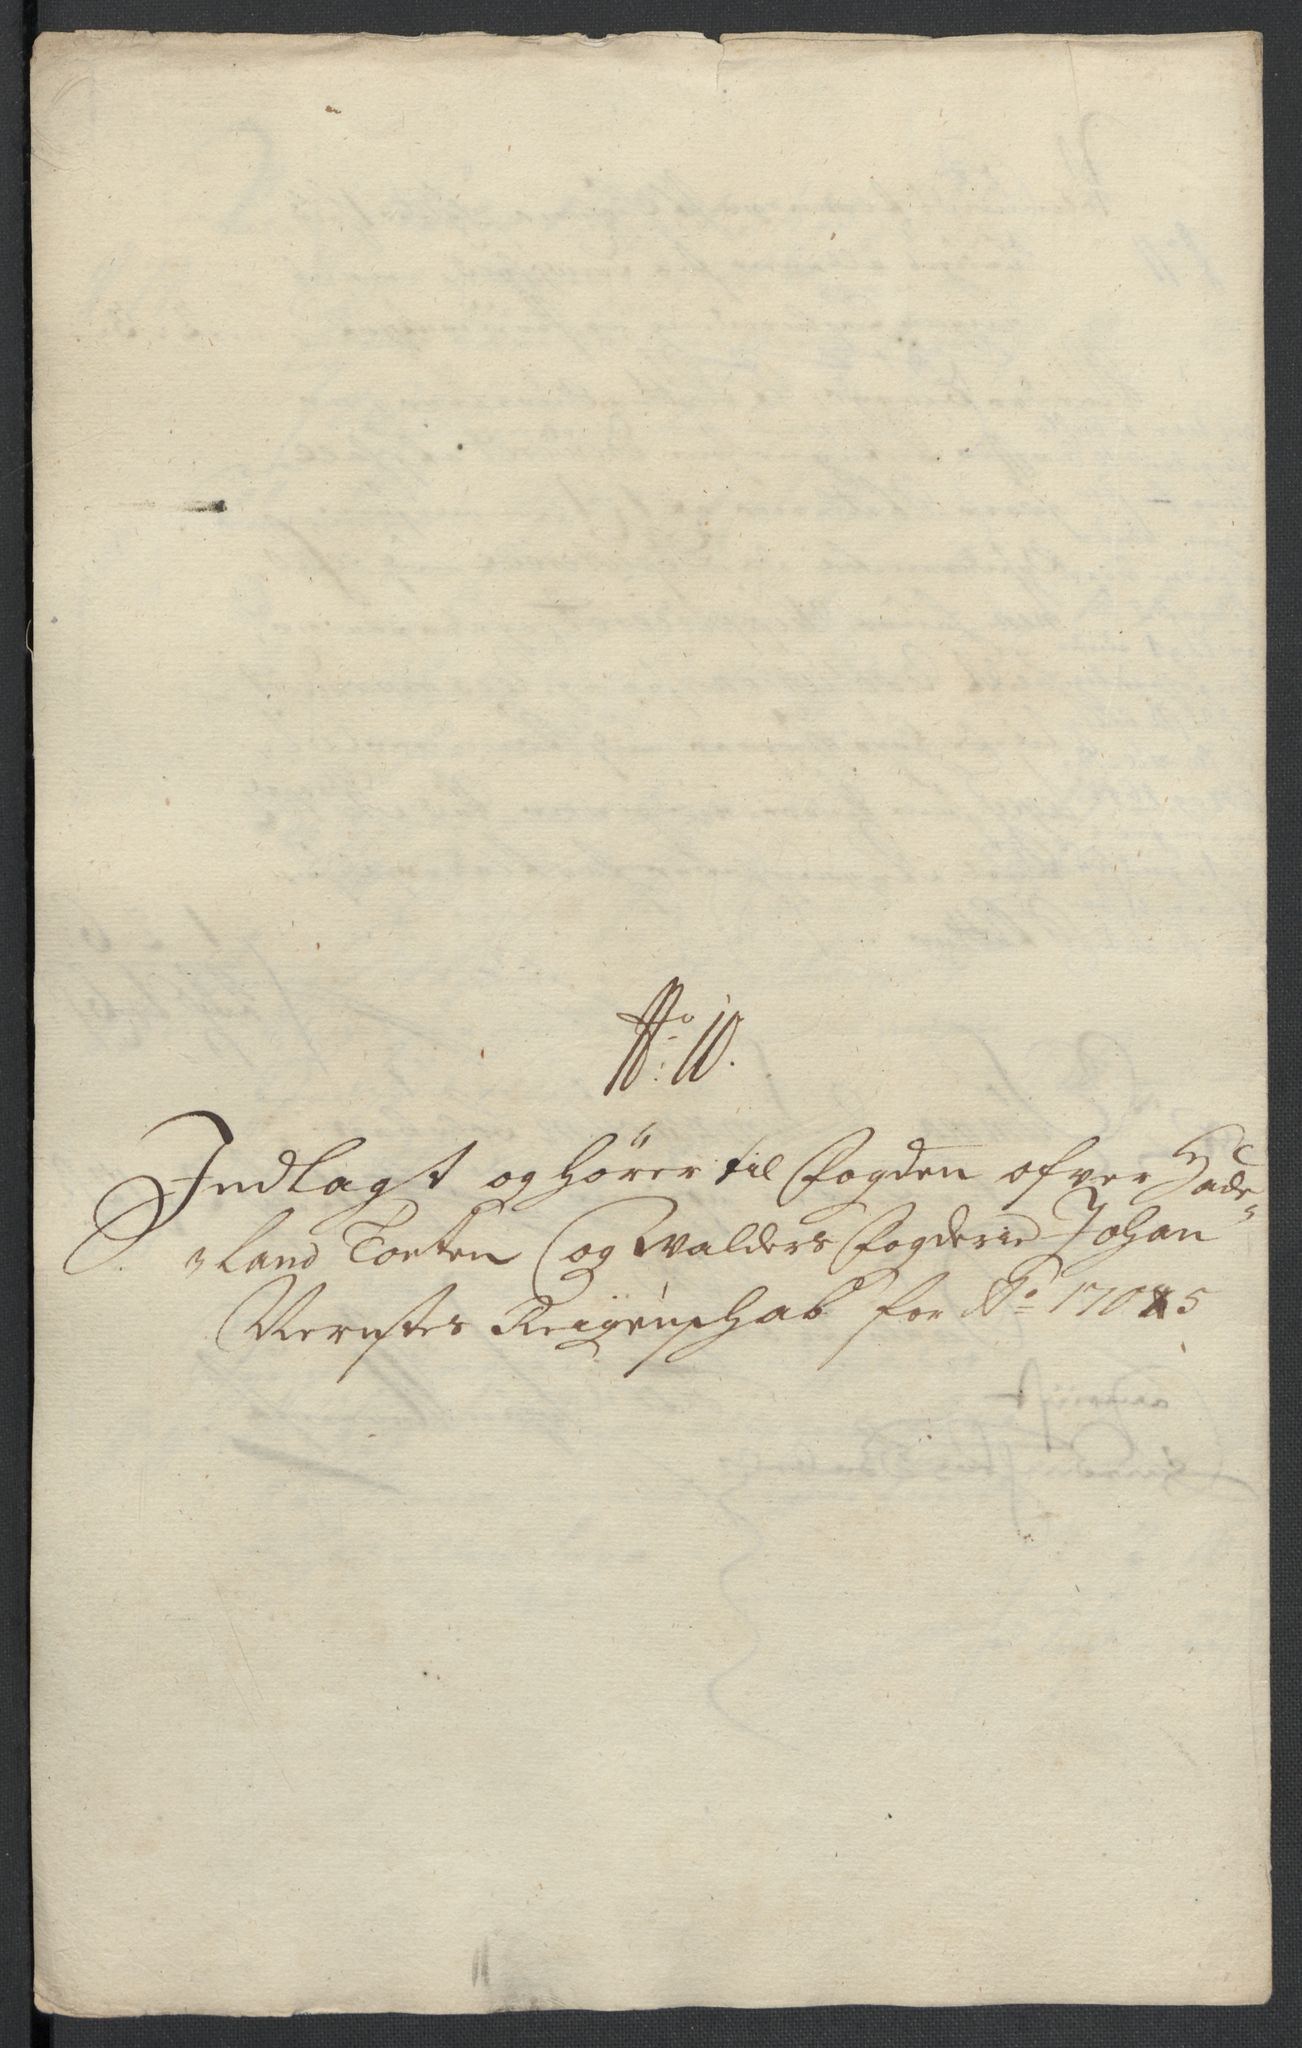 No: 10.
Indlagt og hörer til Fogden ofver Hade„
„land Toeten og Walders Fogderie Johan
Vernstes Reigenschab for Ao 1705